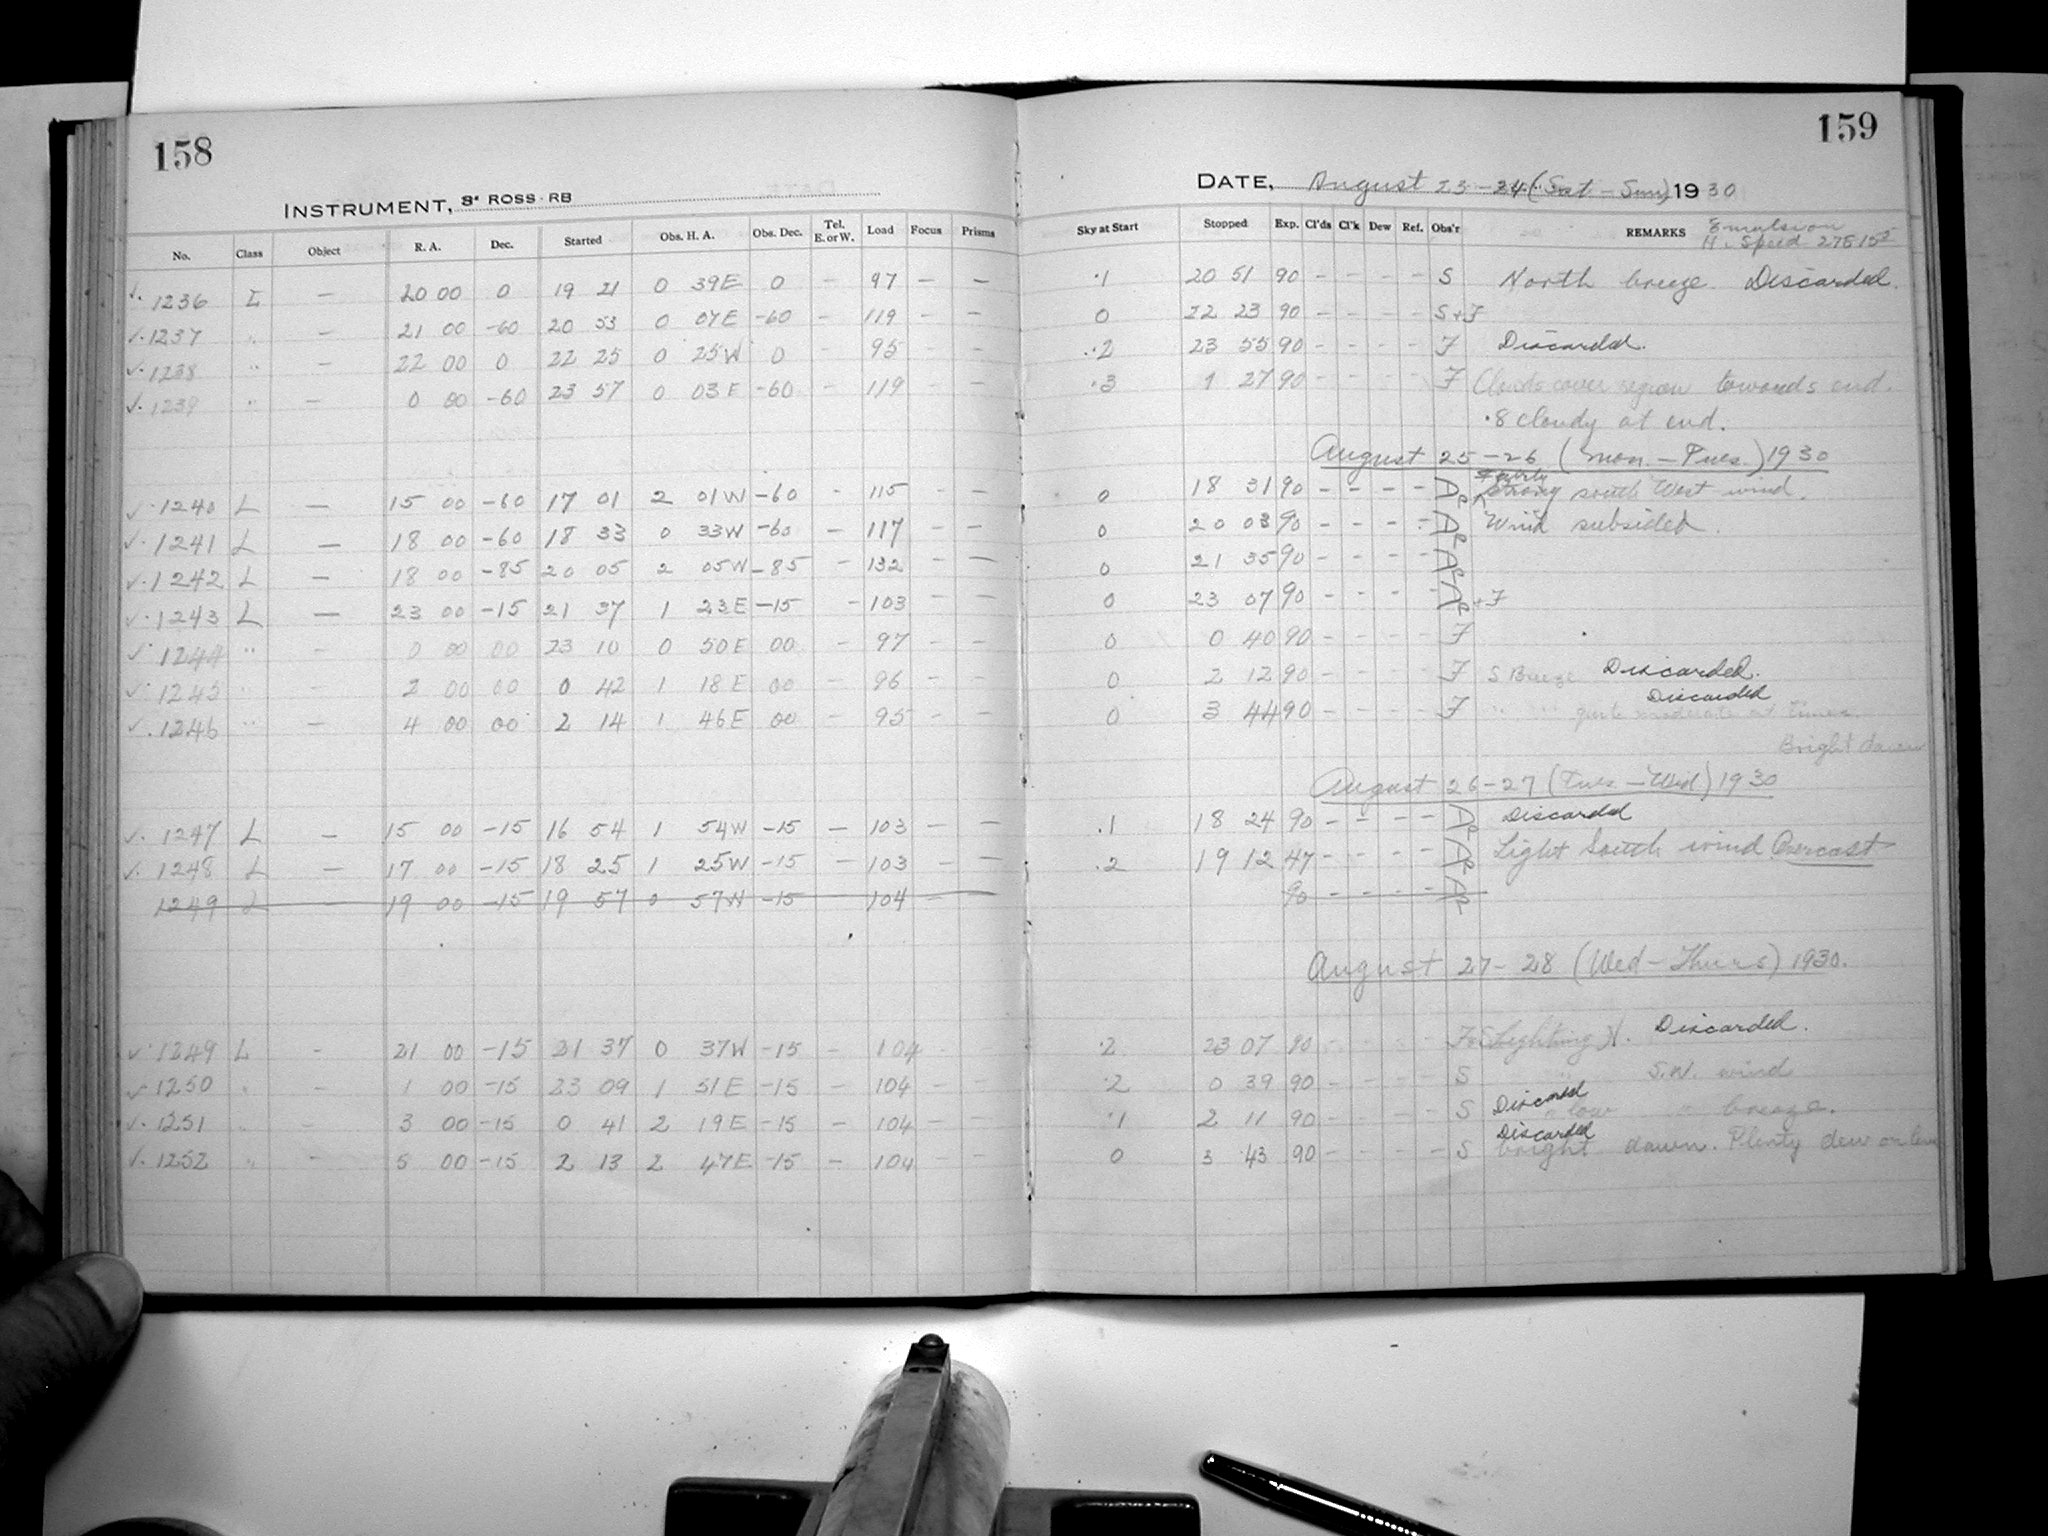 158
INSTRUMENT, 3" ROSS · RB
No. Class Object R. A. Dec. Started Obs. H. A. Obs. Dec. Tel. E. or W. Load Focus Prisms
✓. 1236 L — 20 00 0 19 21 0 39E 0 — 97 — —
✓. 1237 " — 21 00 -60 20 53 0 07E -60 — 119 — —
✓. 1238 " — 22 00 0 22 25 0 25W 0 — 95 —
✓. 1239 " — 0 00 -60 23 57 0 03E -60 — 119 - -
✓. 1240 L — 15 00 -60 17 01 2 01W -60 115 - -
✓. 1241 L — 18 00 -60 18 33 0 33W -60 — 117 - -
✓. 1242 L — 18 00 -85 20 05 2 05W -85 — 132 - —
✓. 1243 L — 23 00 -15 21 37 1 23E -15 — 103 - —
✓. 1244 " - 0 00 00 23 10 0 50E 00 — 97 - -
✓. 1245 " - 2 00 00 0 42 1 18E 00 — 96 - -
✓. 1246 " — 4 00 00 2 14 1 46E 00 — 95 - -
✓. 1247 L — 15 00 -15 16 54 1 54W -15 — 103 — —
✓. 1248 L — 17 00 -15 18 25 1 25W -15 — 103 — —
1249 L — 19 00 -15 19 57 0 57W -15 104 —
✓. 1249 L - 21 00 -15 21 37 0 37W -15 — 104
✓. 1250 " — 1 00 -15 23 09 1 51E -15 — 104 — —
✓. 1251 " — 3 00 -15 0 41 2 19E -15 — 104 — —
✓. 1252 " — 5 00 -15 2 13 2 47E -15 — 104 — —
159
DATE, August 23-24 (Sat-Sun) 1930
Sky at Start Stopped Exp. Cl'ds Cl'k Dew Ref. Obs'r REMARKS Emulsion
H. Speed
.1 20 51 90 - - - - S North breeze. Discarded.
0 22 23 90 - - - - S+F
.2 23 55 90 - - - - F Discarded.
.3 1 27 90 - - - - F Clouds cover region towards end.
.8 cloudy at end.
August 25-26 (Mon.-Tues.) 1930
0 18 31 90 - - - - Fairly Strong south West wind.
0 20 03 90 - - - - Wind subsided.
0 21 35 90 - - - -
0 23 07 90 - - - - +F
0 0 40 90 - - - - F
0 2 12 90 - - - - F S Breeze Discarded.
0 3 44 90 - - - - F " " quite moderate at times. Discarded
Bright dawn
August 26-27 (Tues-Wed) 1930
.1 18 24 90 - - - - Discarded
.2 19 12 47 - - - - Light South wind Overcast
90 - - - -
August 27-28 (Wed-Thurs) 1930.
.2 23 07 90 - - - - F+S Lighting N. Discarded.
.2 0 39 90 - - - - S S.W. wind
.1 2 11 90 - - - - S Discarded " low " breeze.
0 3 43 90 - - - - S Discarded bright dawn. Plenty dew on